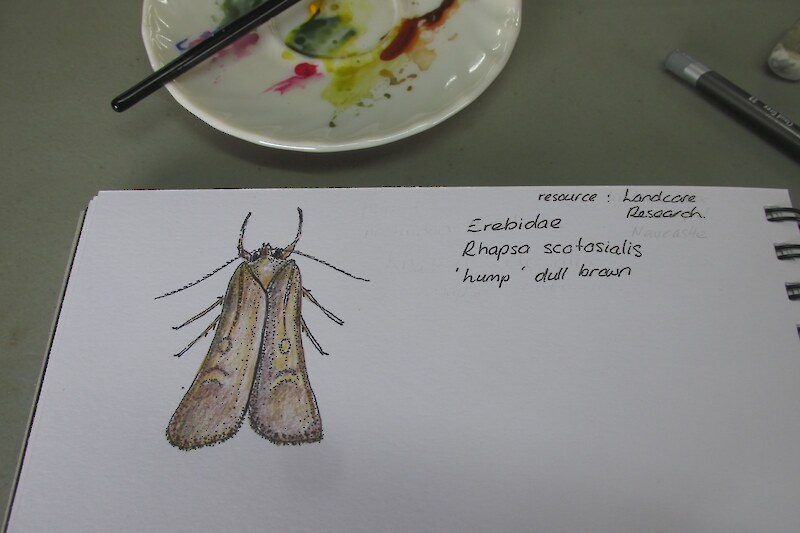 resource : Landcare
Research.
Erebidae
Rhapsa scotosialis
'hump' dull brown